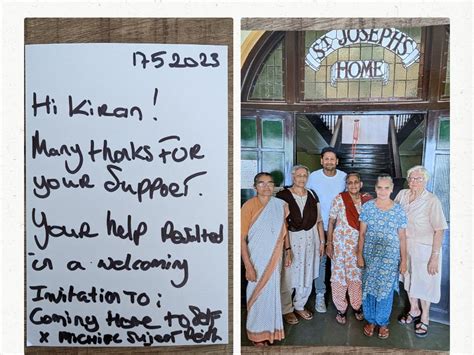 17 5 2023
Hi Kiran!
Many thanks FOR
your Support.
Your help Resulted
in a welcoming
Invitation To:
Coming Home to Self
x
ST JOSEPH'S
HOME